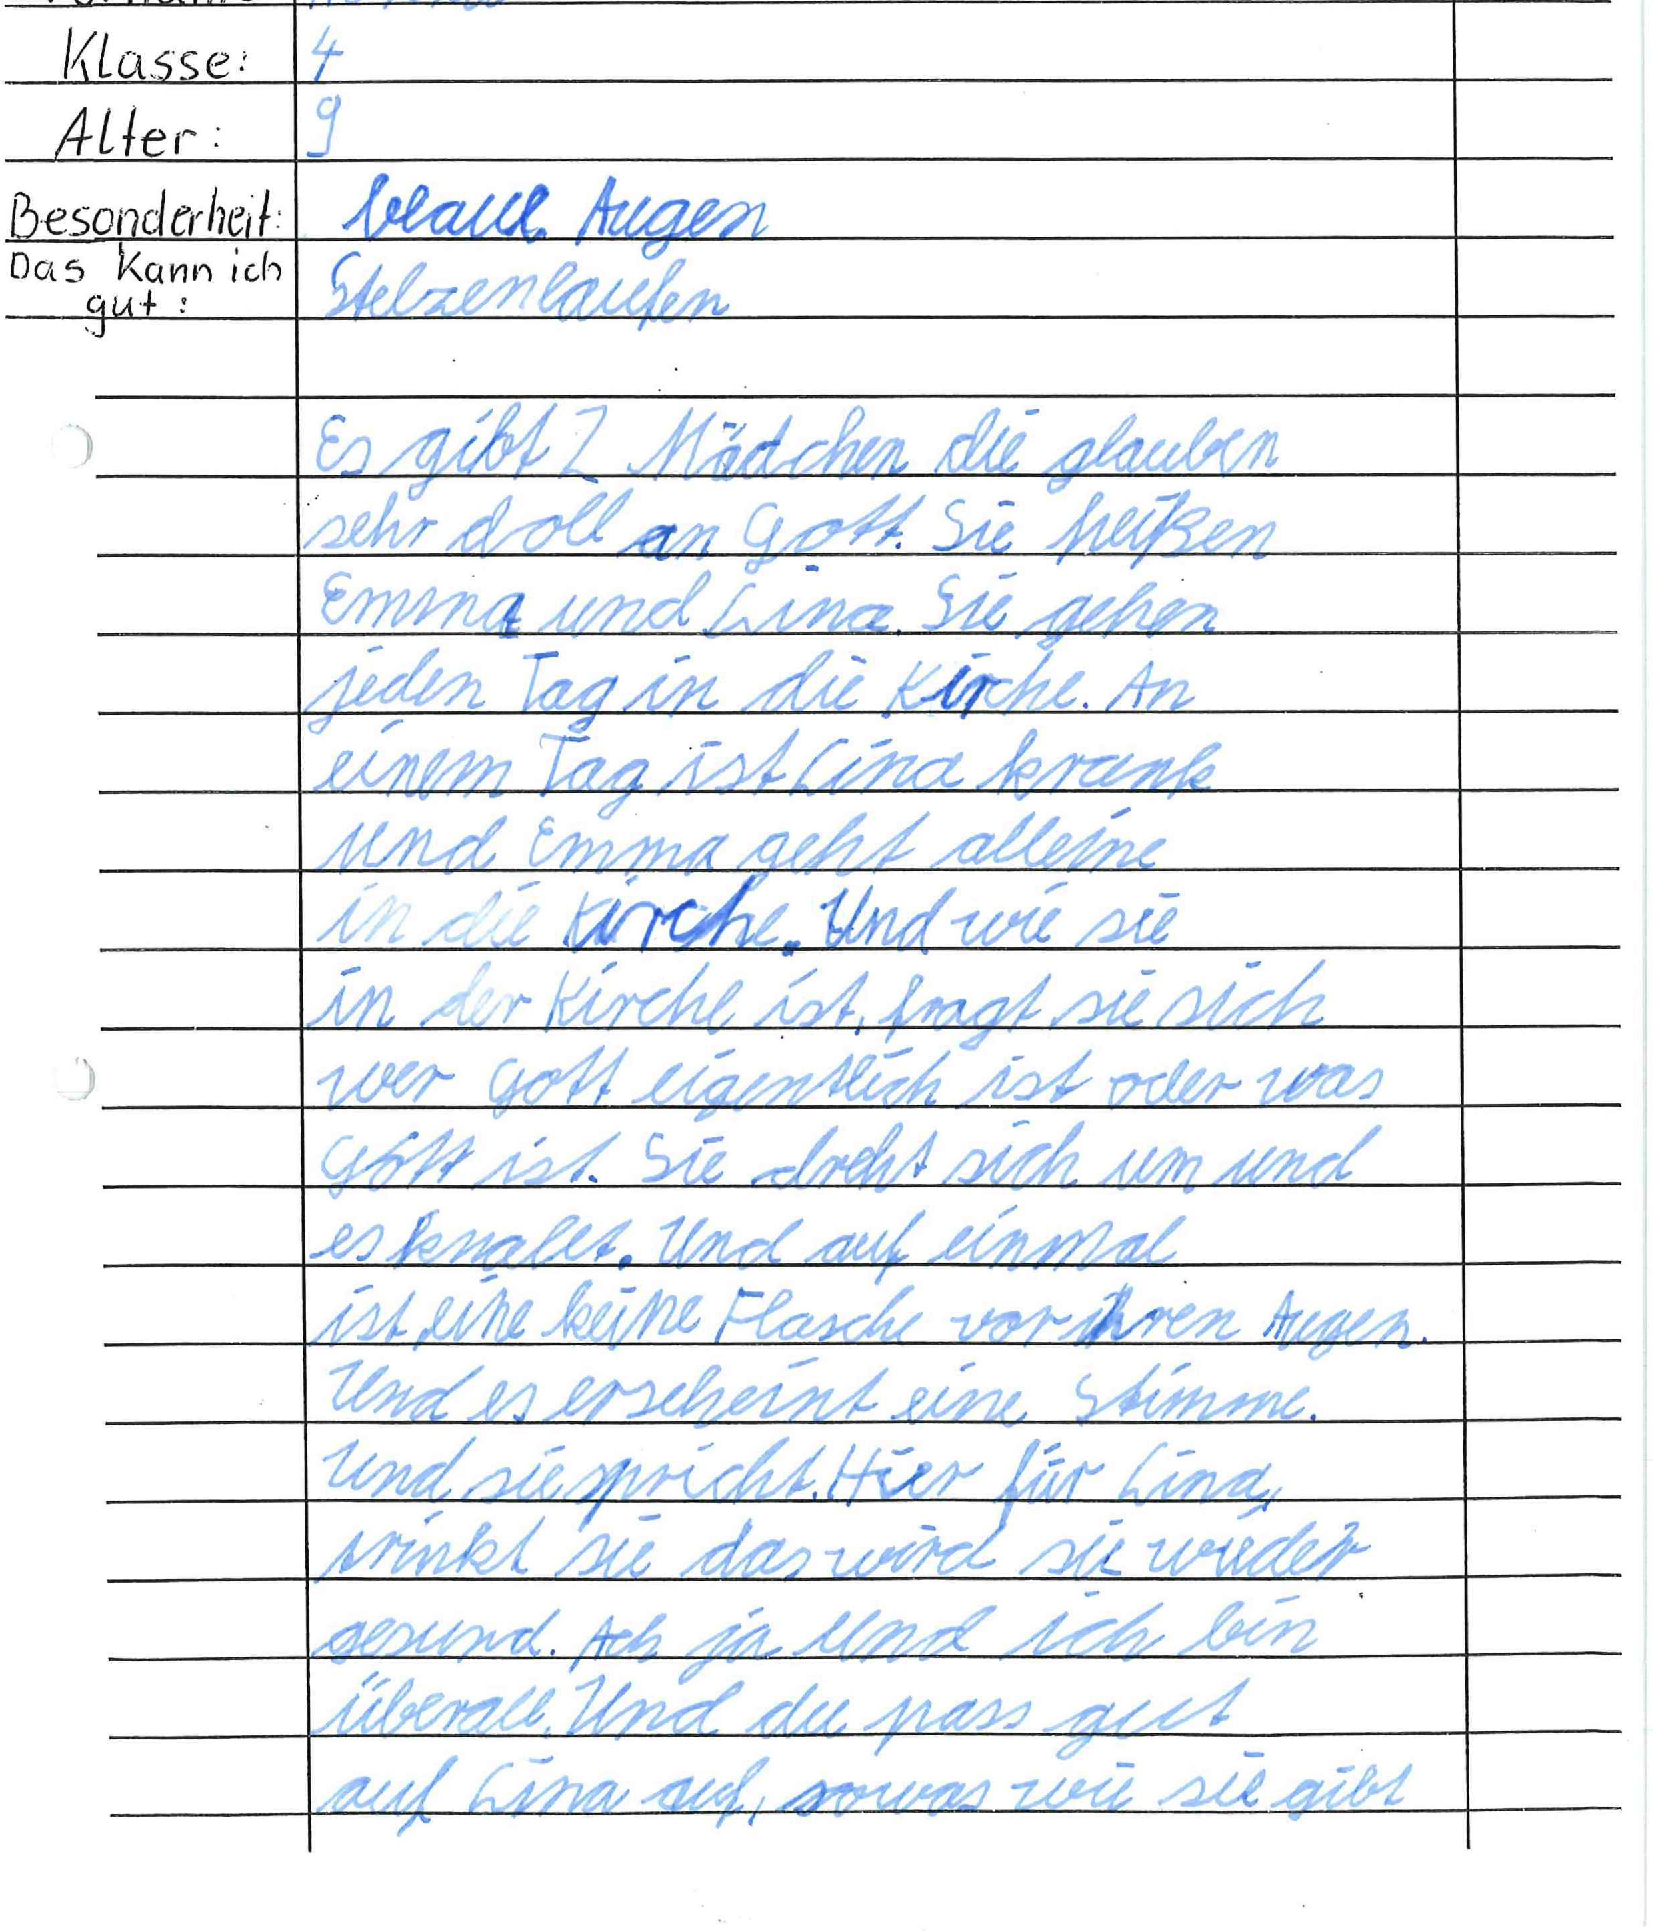 Klasse: 4
Alter: 9
Besonderheit: blaue Augen
Das kann ich
gut: Stelzenlaufen
Es gibt 2 Mädchen die glauben
sehr doll an Gott. Sie heißen
Emma und Lina. Sie gehen
jeden Tag in die Kirche. An
einem Tag ist Lina krank
und Emma geht alleine
in die Kirche. Und wie sie
in der Kirche ist, fragt sie sich
wer Gott eigentlich ist oder was
Gott ist. Sie dreht sich um und
es knallt. Und auf einmal
ist eine keine Flasche vor ihren Augen.
Und es erscheint eine Stimme.
Und sie spricht. Hier für Lina,
trinkt sie das wird sie wieder
gesund. Ach ja und ich bin
überall. Und du pass gut
auf Lina auf, sowas wie sie gibt